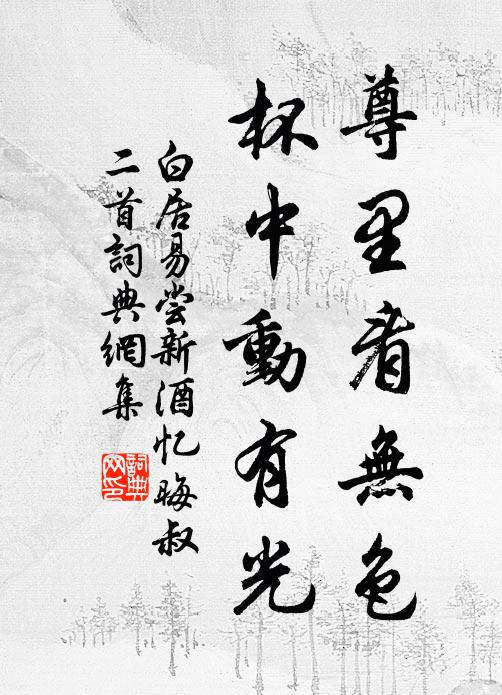 尊里看無色
杯中動有光
白居易尝新酒忆晦叔
二首詞典網集
詞典
网印